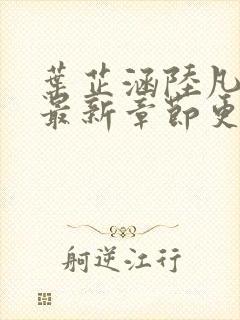 葉芷涵陸凡
最新章節更
躺逆江行